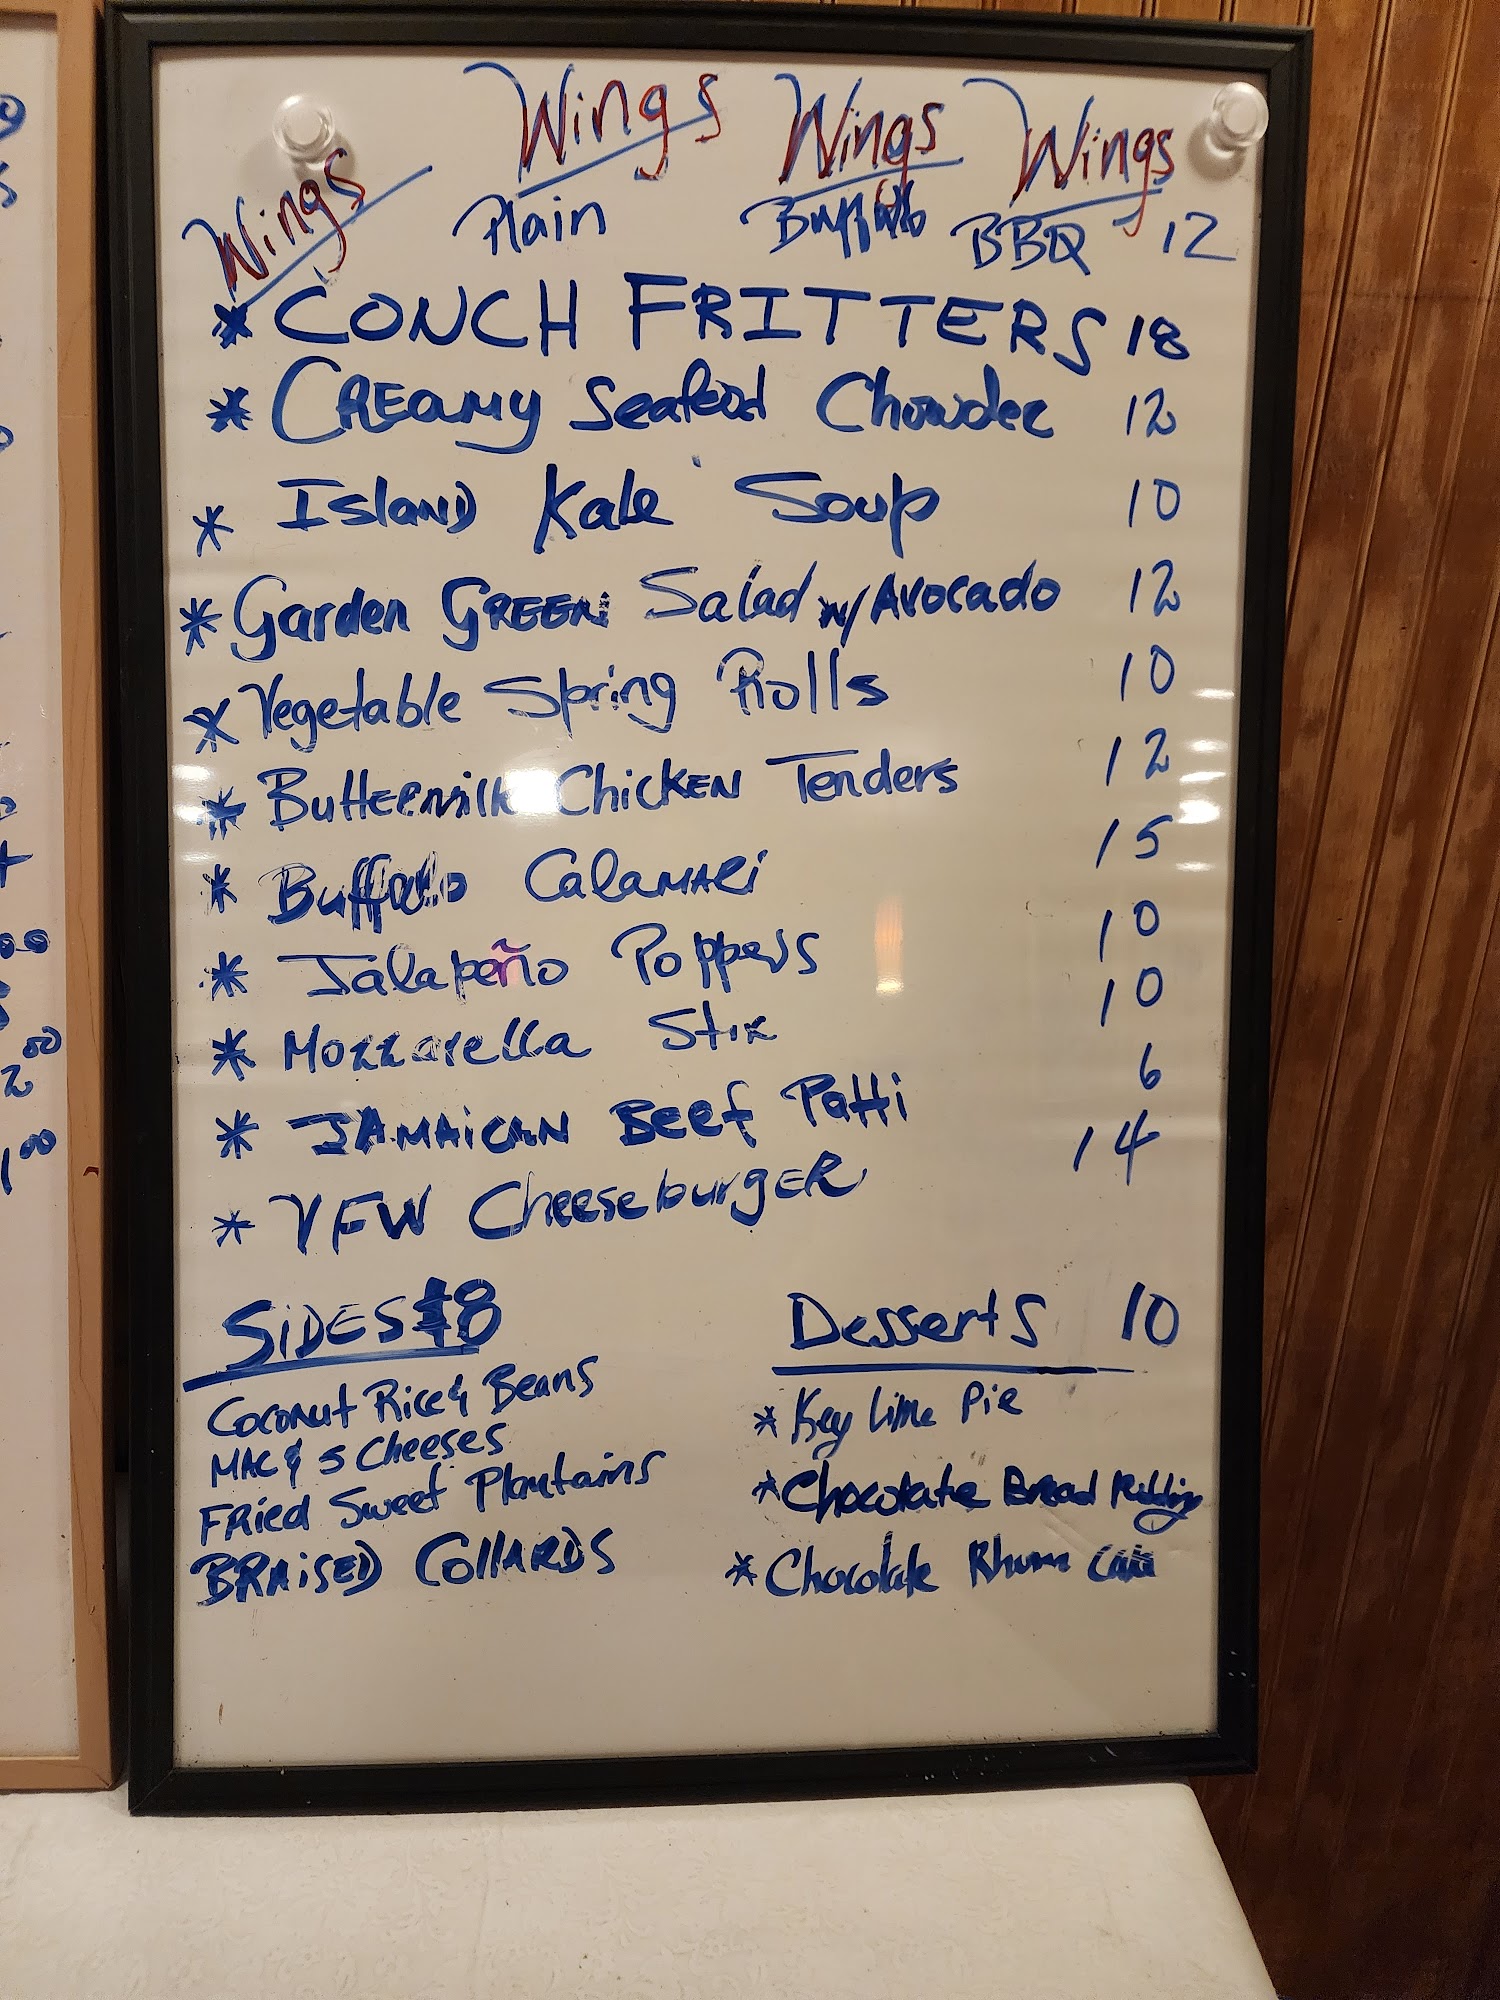 Wings Wings Wings Wings
Plain Buffalo BBQ 12
* CONCH FRITTERS 18
* CREAMY Seafood Chowder 12
* ISLAND Kale Soup 10
* Garden GREEN Salad w/ Avocado 12
* Vegetable Spring Rolls 10
* Buttermilk Chicken Tenders 12
* Buffalo Calamari 15
* Jalapeño Poppers 10
* Mozzarella Stix 10
* JAMAICAN Beef Patti 6
* VFW CheeseburgER 14
SIDES $8
Coconut Rice & Beans
MAC & 5 Cheeses
FRied Sweet Plantains
BRAISED COllARDS
Desserts 10
* Key Lime Pie
* Chocolate Bread Pudding
* Chocolate Rhum Cake